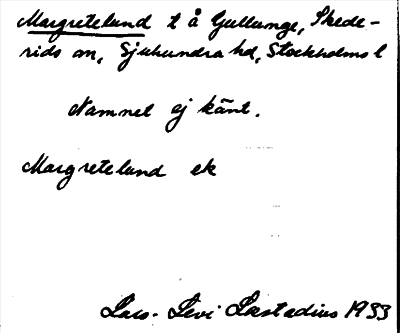 Margretelund t å Gullunge, Skede-
rids sn, Sjuhundra hd, Stockholms l
Namnet ej känt.
Margretelund ek
Lars-Levi Læstadius 1933